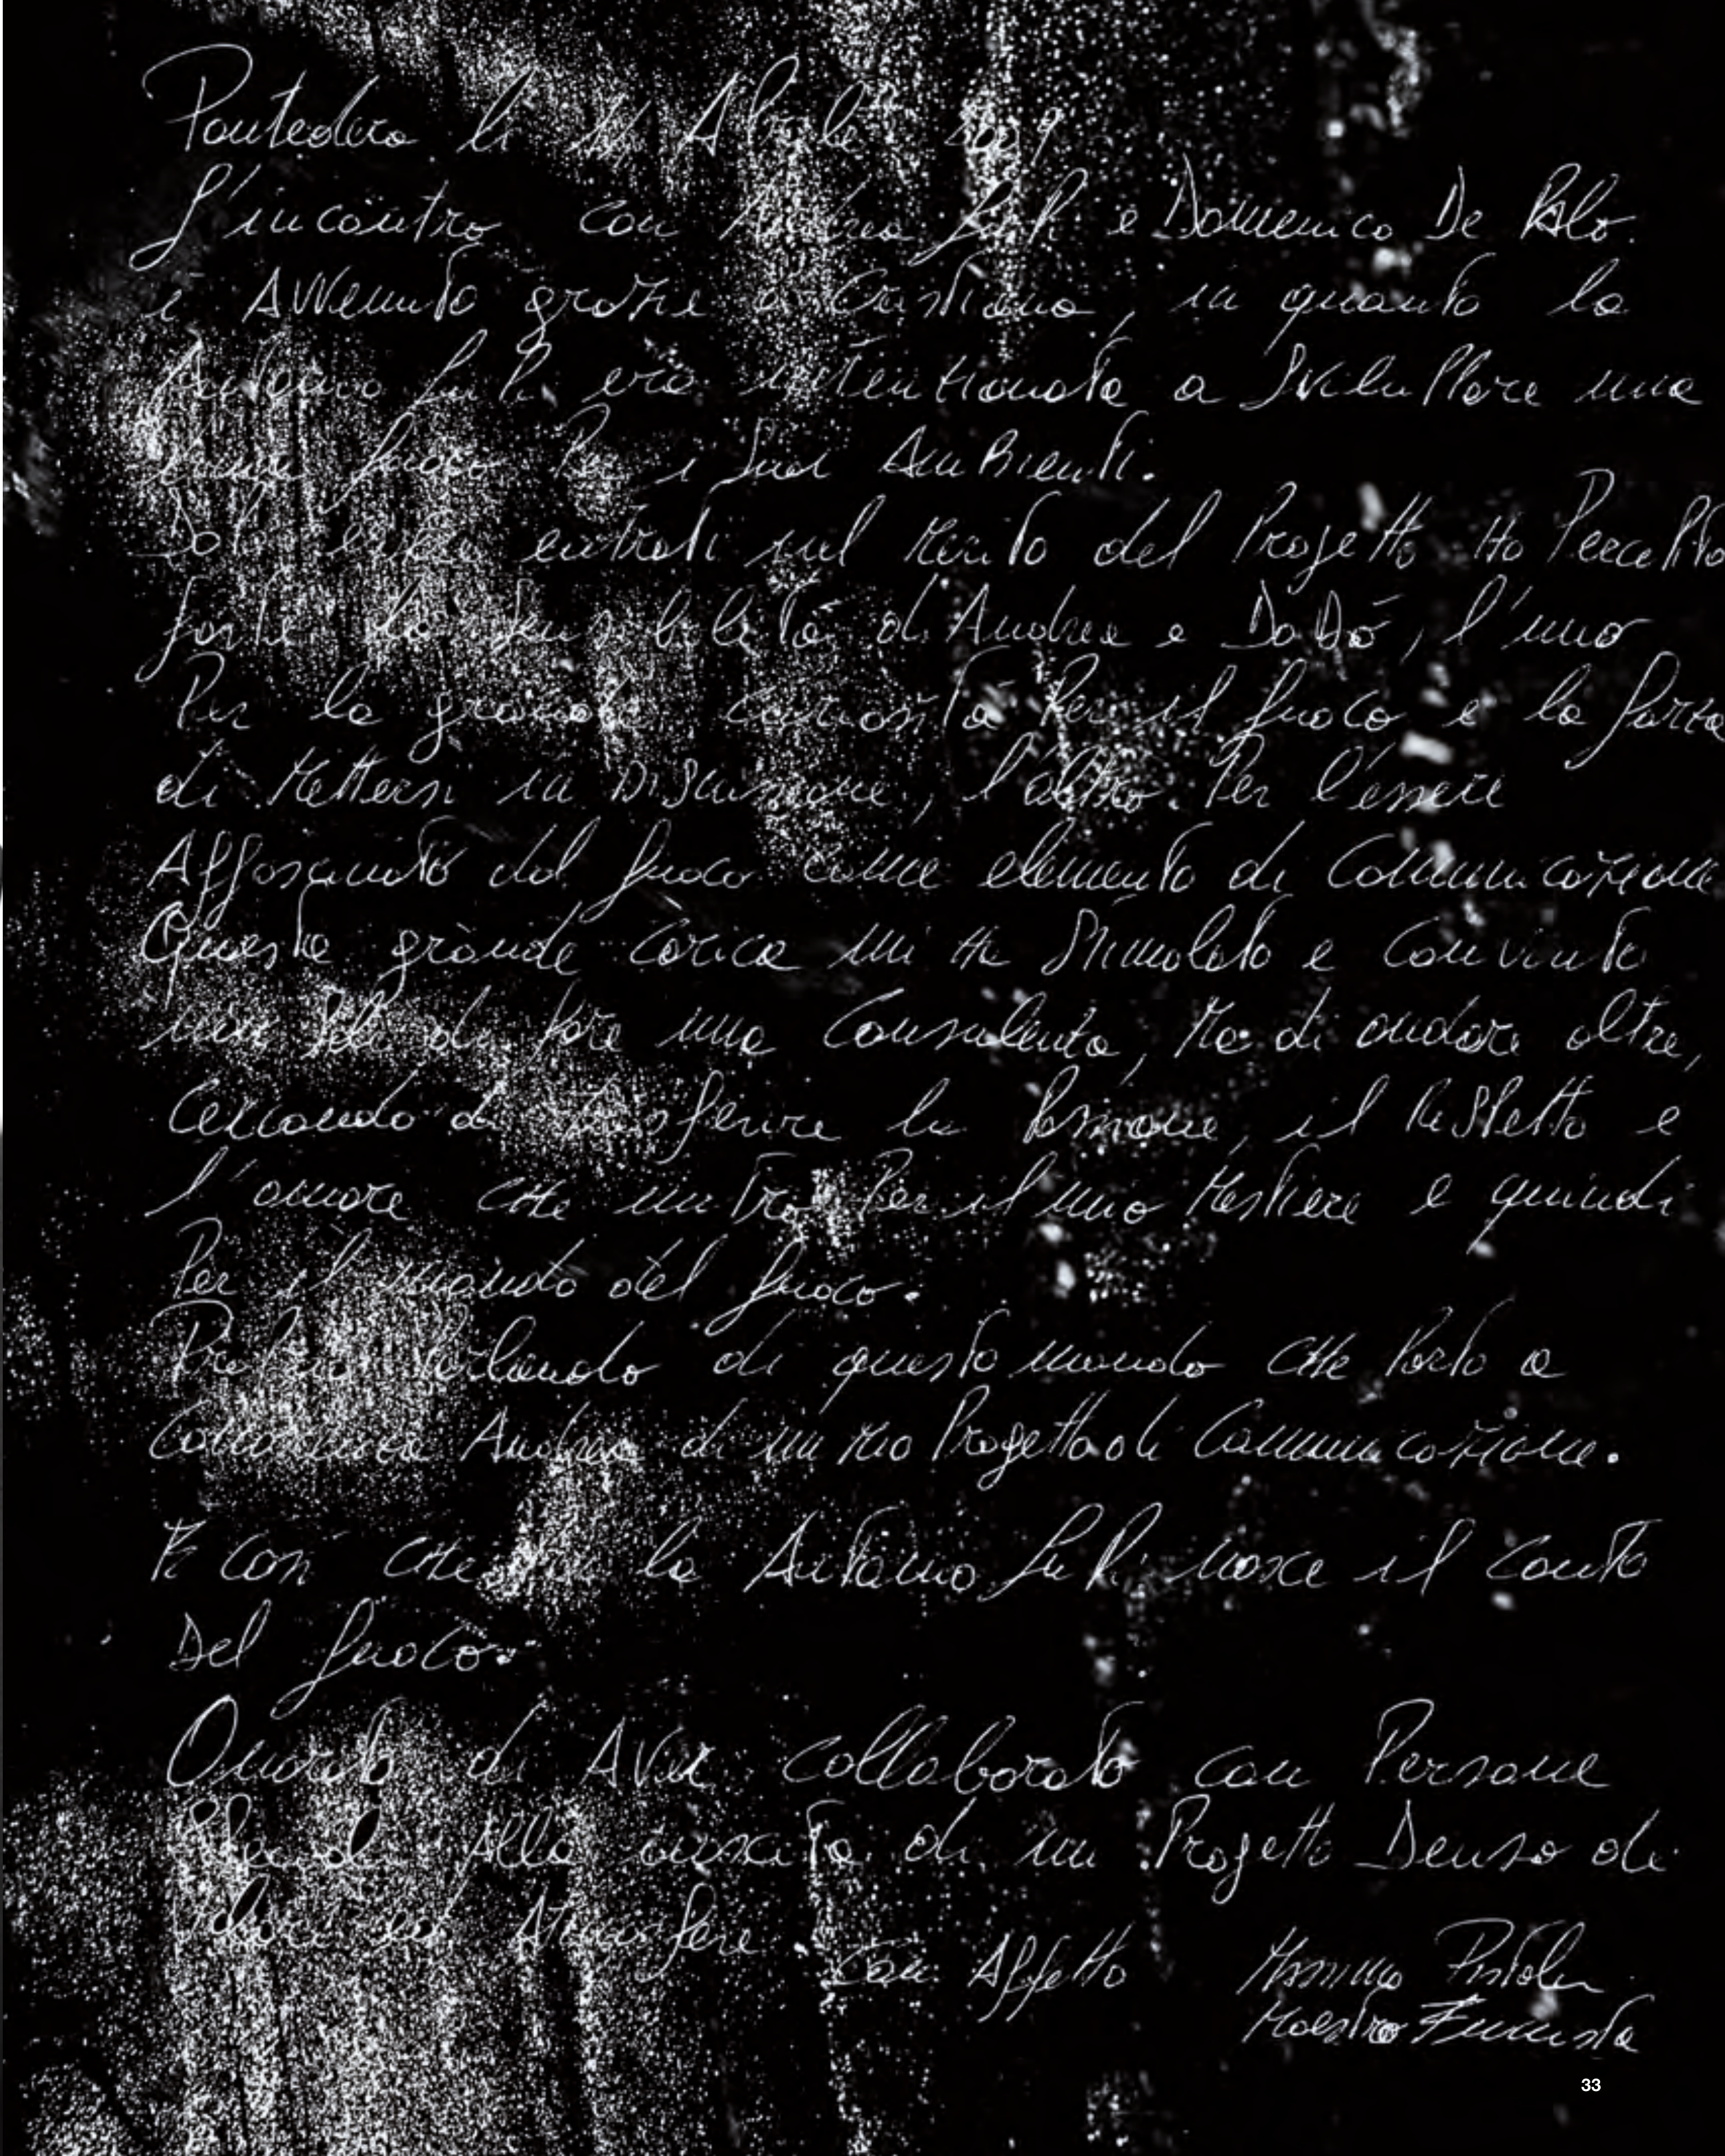 Pontedera li Aprile 2009
L'incontro con Andrea Lupi e Domenico De Palo.
è Avvenuto grazie a Cristiana, in quanto la
Antonio Lupi era intenzionata a Sviluppare una
linea fuoco Per i Suoi Ambienti.
entrati nel Merito del Progetto Ho Percepito
forte la sensibilità di Andrea e DoDò, l'uno
Per la grande curiosità Per il fuoco e la forza
di Mettersi in Discussione, l'altro Per l'essere
Affascinato dal fuoco come elemento di Comunicazione
Questa grande carica mi Ha Stimolato e Convinto
non solo di fare una Consulenza, Ma di andare oltre,
Cercando di trasferire la Passione, il Rispetto e
l'amore che nutro Per il mio Mestiere e quindi
Per il mondo del fuoco.
Proprio Parlando di questo mondo CHe Porto a
Conoscenza Andrea di un Mio Progetto di Comunicazione.
È Così CHe la Antonio Lupi nasce il Canto
Del fuoco.
Onorato di Aver collaborato con Persone
Alla nascita di un Progetto Denso di
ed Atmosfere. Con Affetto Massimo
Maestro Fumista
33